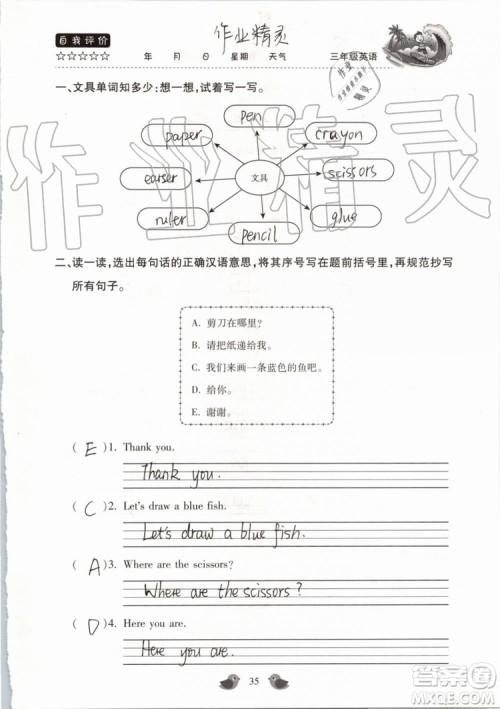 自我评价
作业精灵
☆☆☆☆☆ 年 月 日 星期 天气 三年级英语
一、文具单词知多少:想一想,试着写一写。
pen
paper
crayon
earser
文具
scissors
ruler
glue
pencil
二、读一读,选出每句话的正确汉语意思,将其序号写在题前括号里,再规范抄写
所有句子。
A. 剪刀在哪里?
B. 请把纸递给我。
C. 我们来画一条蓝色的鱼吧。
D. 给你。
E. 谢谢。
( E )1. Thank you.
Thank you.
( C )2. Let's draw a blue fish.
Let's draw a blue fish.
( A )3. Where are the scissors?
Where are the scissors?
( D )4. Here you are.
Here you are.
35
作业精灵
答案圈
MXQE.COM